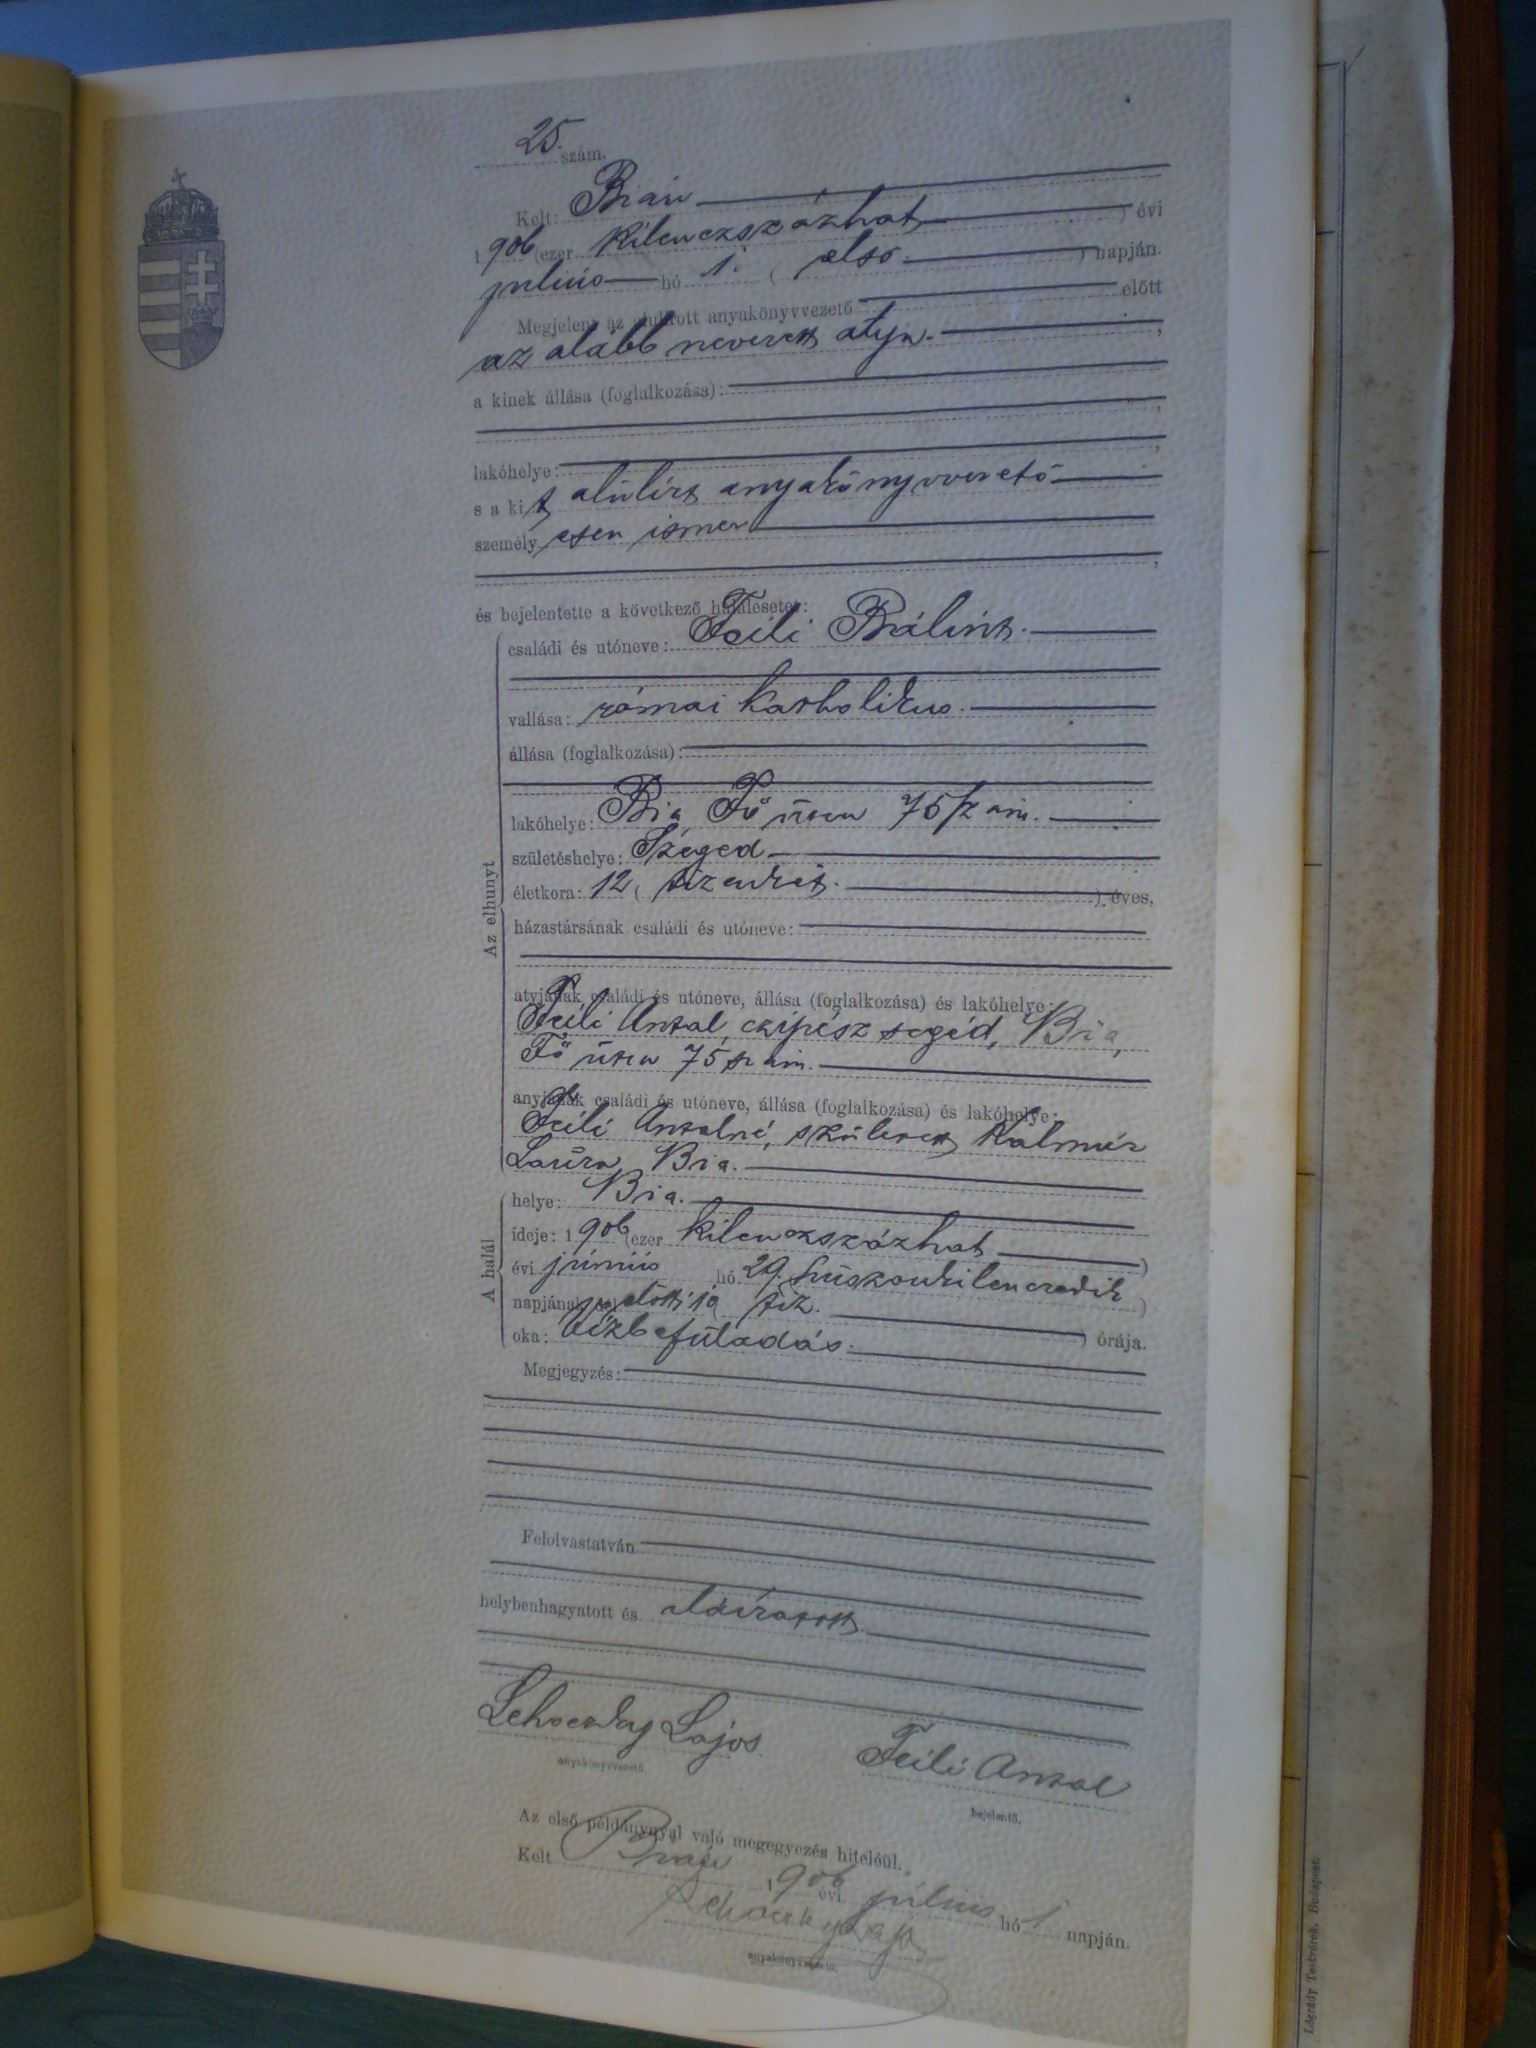 25. szám.
Kelt: Bián
1906 (ezer kilenczszázhat ) évi
julius hó 1. ( elso. ) napján.
Megjelent az alulírott anyakönyvvezető előtt
az alább nevezett atya. ,
a kinek állása (foglalkozása):
,
lakóhelye: ,
s a kit alúlirt anyakönyvvezető
személyesen ismer
,
és bejelentette a következő halálesetet:
Az elhunyt
családi és utóneve: Feili Bálint.
vallása: római katholikus.
állása (foglalkozása):
lakóhelye: Bia Fő útcza 75 szám.
születéshelye: Szeged
életkora: 12 ( tizenkét. ) éves,
házastársának családi és utóneve:
atyjának családi és utóneve, állása (foglalkozása) és lakóhelye:
Feili Antal, czipész segéd, Bia,
Fő útcza 75 szám.
anyjának családi és utóneve, állása (foglalkozása) és lakóhelye:
Feili Antalné, született Kalmár
Laúra, Bia.
A halál
helye: Bia.
ideje: 1906 (ezer kilenczszázhat )
évi június hó 29. huszonkilenczedik )
napjának d előtti 10 ( tiz. ) órája.
oka: Vízbefúladás.
Megjegyzés:
Felolvastatván
helybenhagyatott és aláíratott
Lehoczky Lajos
anyakönyvvezető.
Feili Antal
bejelentő.
Az első példánynyal való megegyezés hiteléül.
Kelt Bián 1906 évi július hó 1 napján.
Lehoczky Lajos
anyakönyvvezető.
Légrády Testvérek, Budapest.